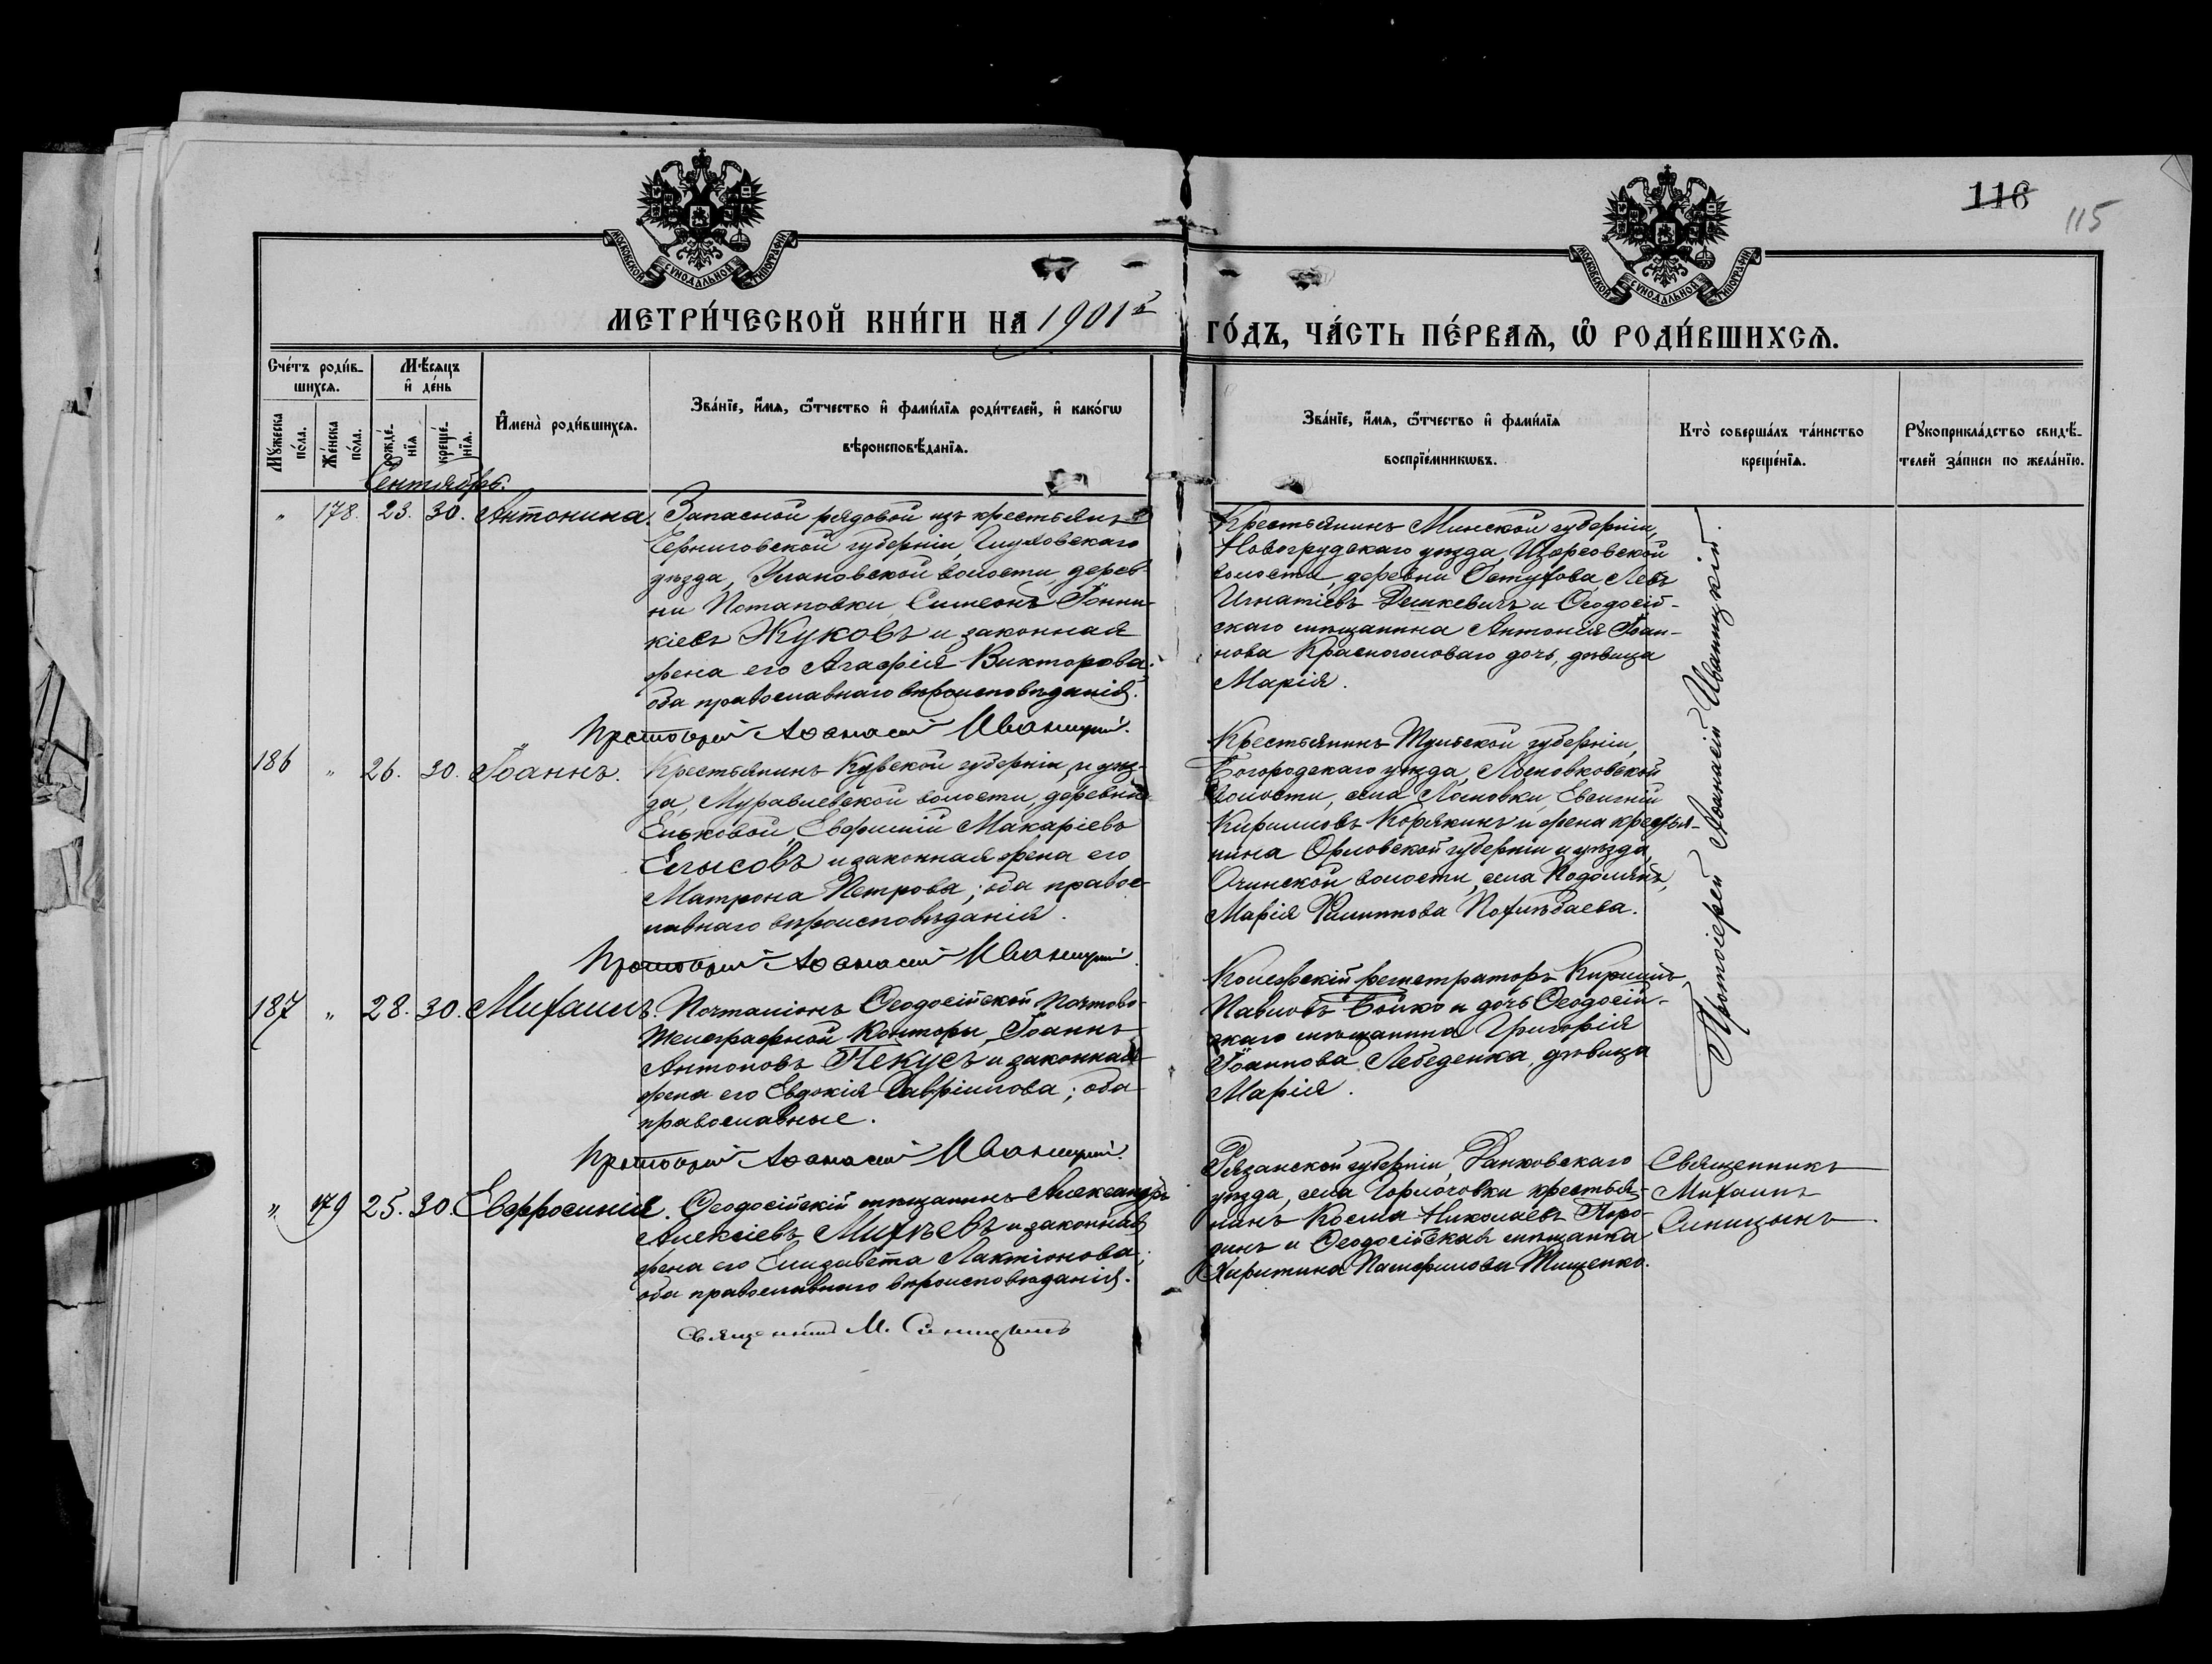 116
115
МОСКОВСКОЙ СѴНОДАЛЬНОЙ ТИПОГРАФІИ
МОСКОВСКОЙ СѴНОДАЛЬНОЙ ТИПОГРАФІИ
МЕТРИ́ЧЕСКОЙ КНИ́ГИ НА 1901й
ГО́ДЪ, ЧА́СТЬ ПЕ́РВАѦ, Ѡ҆ РОДИ́ВШИХСѦ.
Сче́тъ роди́в-
шихсѧ.
Мꙋ́жеска по́ла.
Же́нска по́ла.
Мѣ́сѧцъ
и҆ де́нь
рожде́-
нїѧ
креще́-
нїѧ.
И҆мена̀ роди́вшихсѧ.
Зва́нїе, и҆́мѧ, ѻ҆́тчество и҆ фами́лїѧ роди́телей, и҆ како́гѡ
вѣроисповѣ́данїѧ.
Зва́нїе, и҆́мѧ, ѻ҆́тчество и҆ фами́лїѧ
воспрїе́мникѡвъ.
Кто̀ соверша́лъ та́инство
креще́нїѧ.
Рꙋкоприкла́дство свидѣ́-
телей за́писи по жела́нїю.
Сентябрь.
" 178. 23. 30. Антонина.
Запасной рядовой изъ крестьянъ
Черниговской губерніи, Глуховскаго
уѣзда, Улановской волости, дерев-
ни Потаповки Симеонъ Іонни-
кіевъ Жуковъ и законная
жена его Агафія Викторова;
оба православнаго вѣроисповѣданія.
Протоіерей Аѳанасій Иваницкій.
Крестьянинъ Минской губерніи,
Новогрудскаго уѣзда, Щорсовской
волости, деревни Левъ
Игнатіевъ Демкевичъ и Ѳеодосій-
скаго мѣщанина Антонія Іоан-
нова Красноголоваго дочь, дѣвица
Марія.
Протоіерей Аѳанасій Иваницкій.
186 " 26. 30. Іоаннъ.
Крестьянинъ Курской губерніи и уѣз-
да, Муравлевской волости, деревни
Еськовой, Евфимій Макаріевъ
и законная жена его
Матрона Петрова; оба правос-
лавнаго вѣроисповѣданія.
Протоіерей Аѳанасій Иваницкій.
Крестьянинъ Тульской губерніи,
Богородскаго уѣзда,
волости, села Евгеній
Кирилловъ Корякинъ и жена крестья-
нина Орловской губерніи и уѣзда,
волости, села Подолянъ,
Марія Филиппова
187 " 28. 30. Михаилъ.
Почталіонъ Ѳеодосійской Почтово-
Телеграфной Конторы, Іоаннъ
Антоновъ Пекусъ и законная
жена его Евдокія Гавріилова; оба
православные.
Протоіерей Аѳанасій Иваницкій.
Коллежскій регистраторъ Кириллъ
Павловъ Бойко и дочь Ѳеодосій-
скаго мѣщанина Григорія
Іоаннова Лебеденка, дѣвица
Марія.
" 179 25. 30. Евфросинія.
Ѳеодосійскій мѣщанинъ Александръ
Алексіевъ Михѣевъ и законная
жена его Елизавета Лактіонова;
оба православнаго вѣроисповѣданія.
Священникъ М. Синицынъ
Рязанской губерніи, Ранковскаго
уѣзда, села крестья-
нинъ Косма Николаевъ Поро-
динъ и Ѳеодосійская мѣщанка
Харитина Памфилова Тищенко.
Священникъ
Михаилъ
Синицынъ.